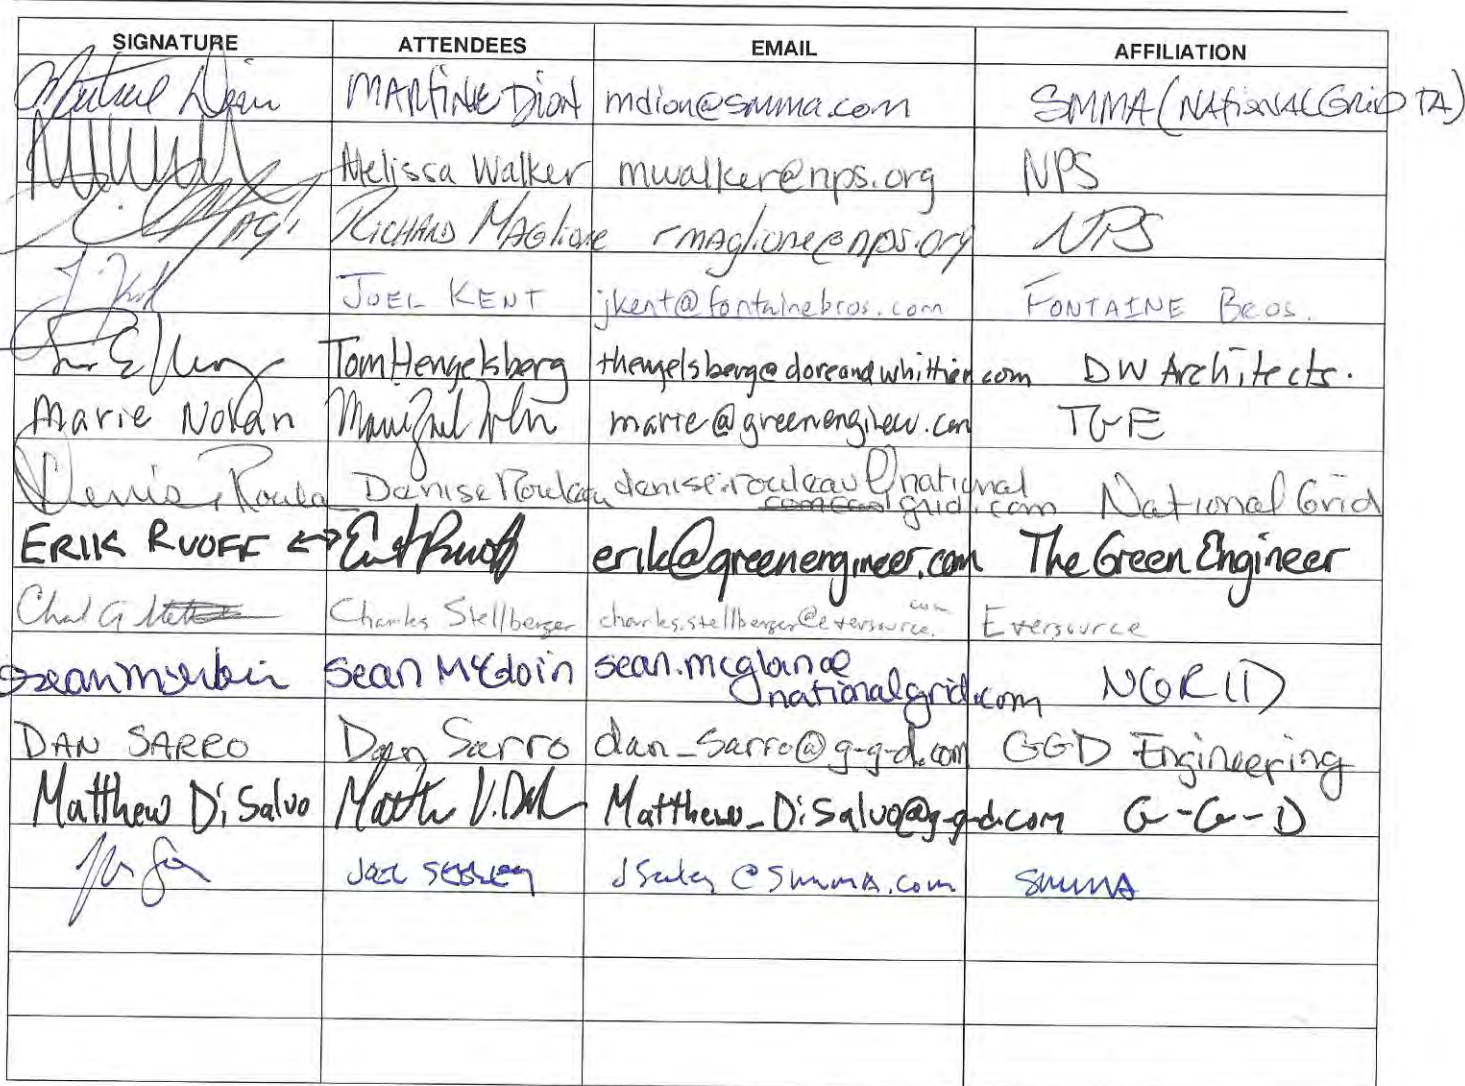 SIGNATURE ATTENDEES EMAIL AFFILIATION
MARTINE DION mdion@smma.com SMMA (NATIONAL GRID TA)
Melissa Walker mwalker@nps.org NPS
RICHARD MAGLIONE rmaglione@nps.org NPS
J. Kent JOEL KENT jkent@fontainebros.com FONTAINE BROS.
Tom Hengelsberg thengelsberg@doreandwhittier.com DW Architects.
Marie Nolan marie@greenengineer.com TGE
Denise Rouleau denise.rouleau@national
grid.com National Grid
ERIK RUOFF ↔ Erik Ruoff erik@greenengineer.com The Green Engineer
Charles Stellberger charles.stellberger@eversource.com Eversource
Sean sean.mcgloin@
nationalgrid.com NGRID
DAN SARRO Dan Sarro dan_sarro@g-g-d.com GGD Engineering
Matthew DiSalvo Matthew_DiSalvo@g-g-d.com G-G-D
JOEL SEELEY JSeeley@SMMA.com SMMA